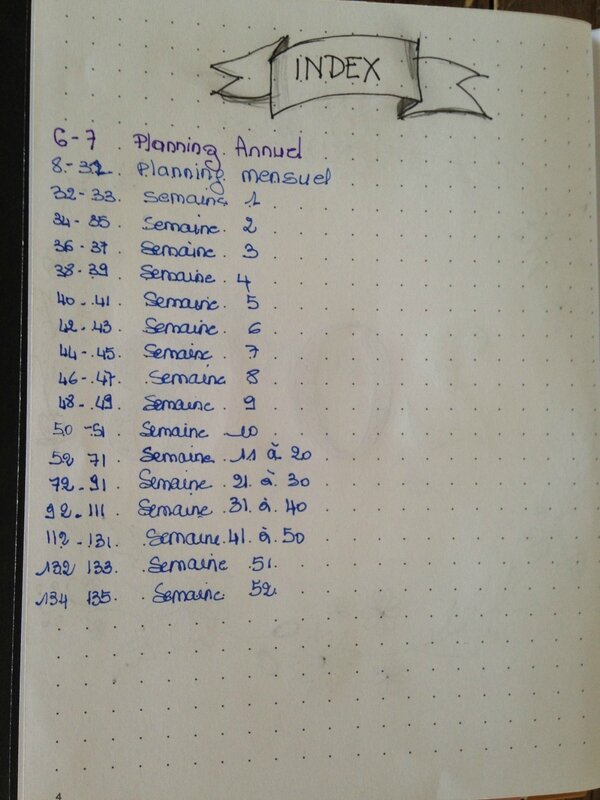 INDEX
6-7 Planning Annuel
8-31 Planning mensuel
32-33 Semaine 1
34-35 Semaine 2
36-37 Semaine 3
38-39 Semaine 4
40-41 Semaine 5
42-43 Semaine 6
44-45 Semaine 7
46-47 Semaine 8
48-49 Semaine 9
50-51 Semaine 10
52 71 Semaine 11 à 20
72-91 Semaine 21 à 30
92-111 Semaine 31 à 40
112-131 Semaine 41 à 50
132 133 Semaine 51
134 135 Semaine 52
4